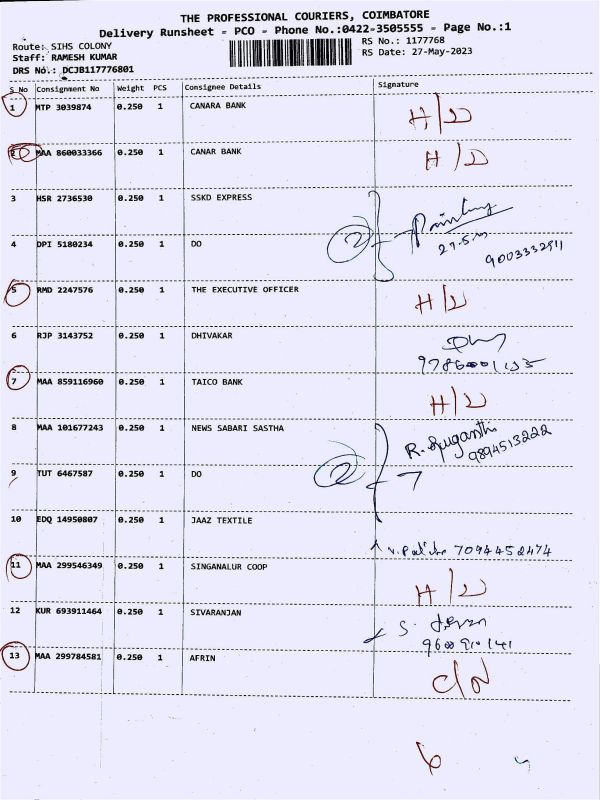 THE PROFESSIONAL COURIERS, COIMBATORE
Delivery Runsheet - PCO - Phone No.:0422-3505555 - Page No.:1
Route: SIHS COLONY RS No.: 1177768
Staff: RAMESH KUMAR RS Date: 27-May-2023
DRS No.: DCJB117776801
S_No Consignment No Weight PCS Consignee Details Signature
1 MTP 3039874 0.250 1 CANARA BANK H/D
2 MAA 860033366 0.250 1 CANAR BANK H/D
3 HSR 2736530 0.250 1 SSKD EXPRESS
4 DPI 5180234 0.250 1 DO 2
9003332911
5 RMD 2247576 0.250 1 THE EXECUTIVE OFFICER H/D
6 RJP 3143752 0.250 1 DHIVAKAR
7 MAA 859116960 0.250 1 TAICO BANK H/D
8 MAA 101677243 0.250 1 NEWS SABARI SASTHA R. Suganthi
9894513222
9 TUT 6467587 0.250 1 DO 2
10 EDQ 14950807 0.250 1 JAAZ TEXTILE
7094452474
11 MAA 299546349 0.250 1 SINGANALUR COOP H/D
12 KUR 693911464 0.250 1 SIVARANJAN S.
9600910141
13 MAA 299784581 0.250 1 AFRIN C/N
6